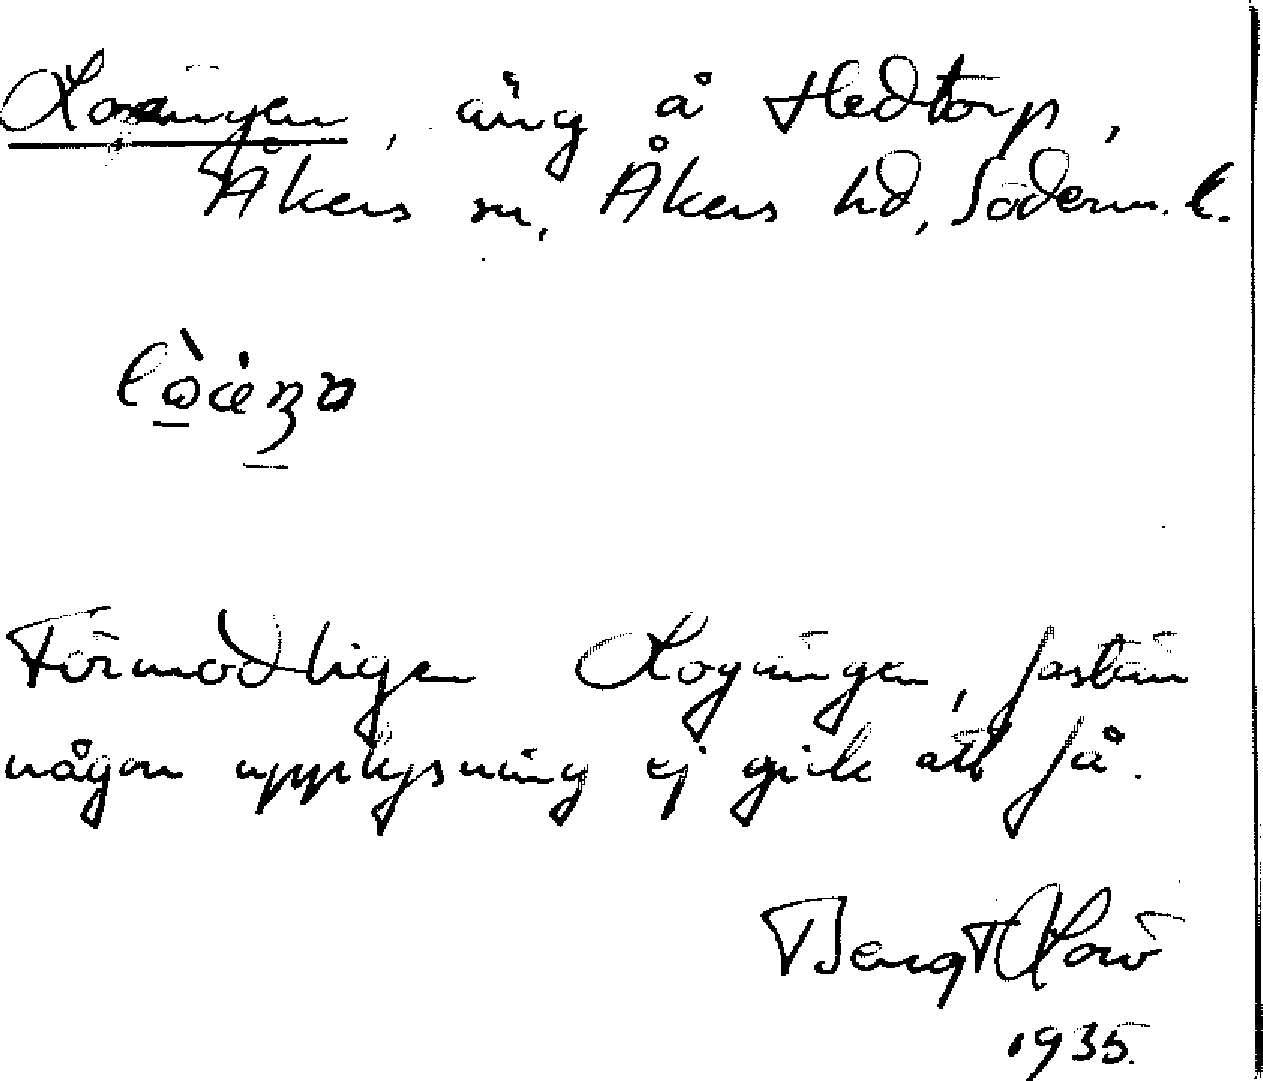 Loängen, äng å Hedtorp,
Åkers sn, Åkers hd, Söderm. l.
Förmodligen Logängen, fastän
någon upplysning ej gick att få.
Bengt Löw
1935.